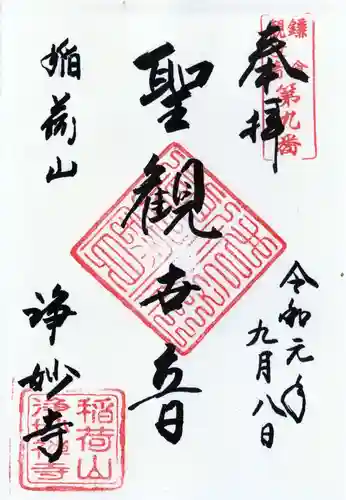 奉拝
鎌倉
観音
第九番
聖観世音
令和元年
九月八日
稲荷山
浄妙寺
稲荷山
浄妙禅寺